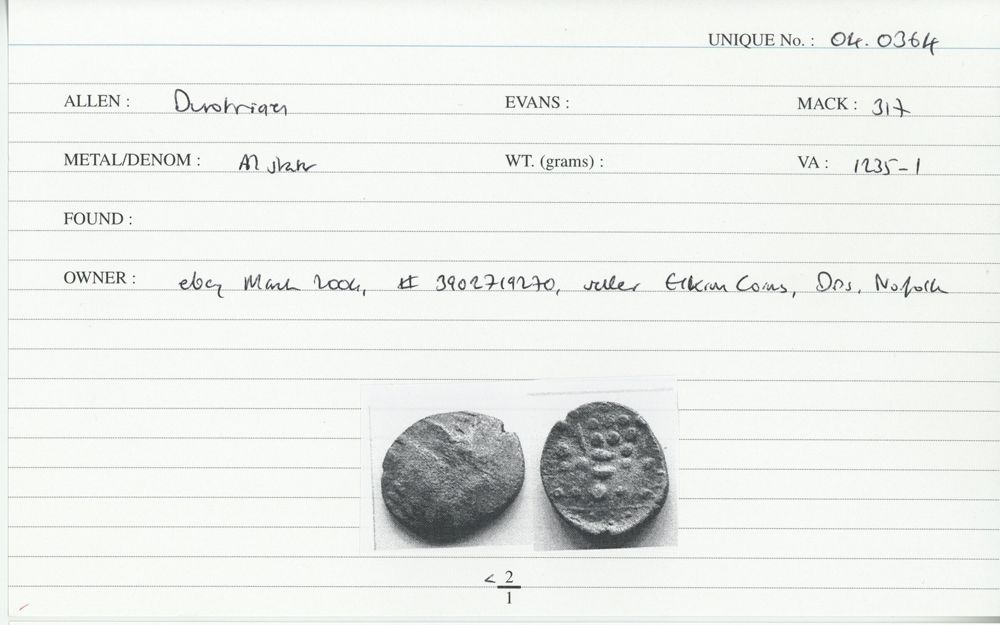 UNIQUE No. : 04.0364
ALLEN : Durotrigan EVANS : MACK : 317
METAL/DENOM : AR stater WT. (grams) : VA : 1235-1
FOUND :
OWNER : ebay March 2004, # 3902719270, seller Elkin Coins, Diss, Norfolk
< 2
1